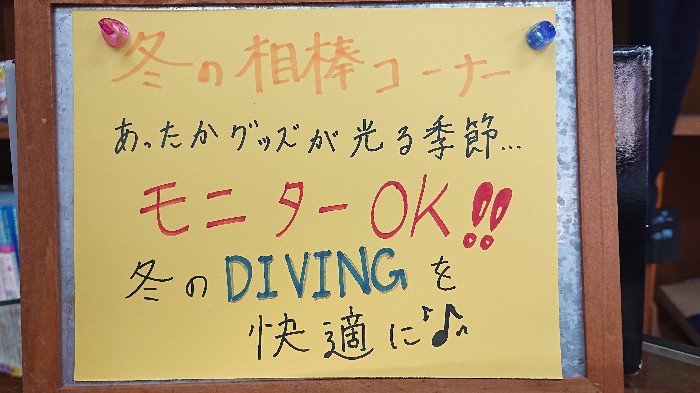 冬の相棒コーナー
あったかグッズが光る季節...
モニターOK!!
冬のDIVINGを
快適に♪